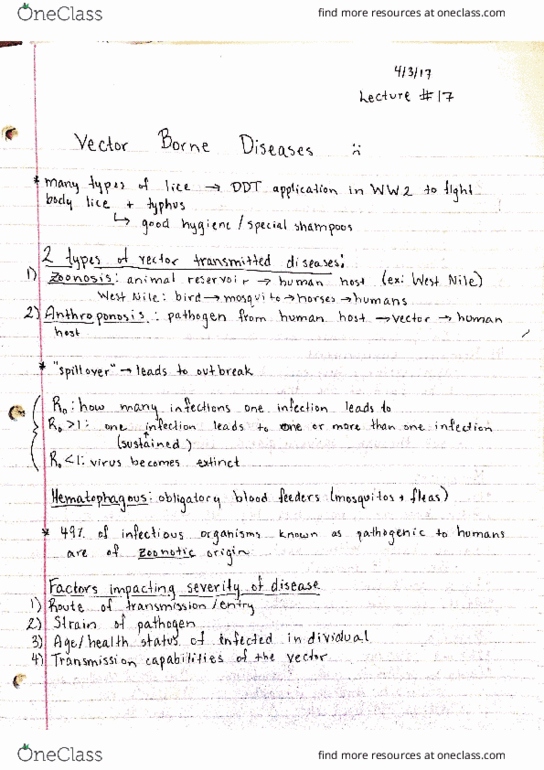 OneClass
find more resources at oneclass.com
4/3/17
Lecture #17
Vector Borne Diseases
* many types of lice → DDT application in WW2 to fight
body lice + typhus
↳ good hygiene / special shampoos
2 types of vector transmitted diseases:
1) Zoonosis: animal reservoir → human host (ex: West Nile)
West Nile: bird → mosquito → horses → humans
2) Anthroponosis: pathogen from human host → vector → human
host
* "spillover" → leads to outbreak
R₀: how many infections one infection leads to
R₀ >1: one infection leads to one or more than one infection
(sustained)
R₀ <1: virus becomes extinct
Hematophagous: obligatory blood feeders (mosquitos + fleas)
* 49% of infectious organisms known as pathogenic to humans
are of zoonotic origin
Factors impacting severity of disease
1) Route of transmission/entry
2) Strain of pathogen
3) Age/health status of infected individual
4) Transmission capabilities of the vector
OneClass
find more resources at oneclass.com